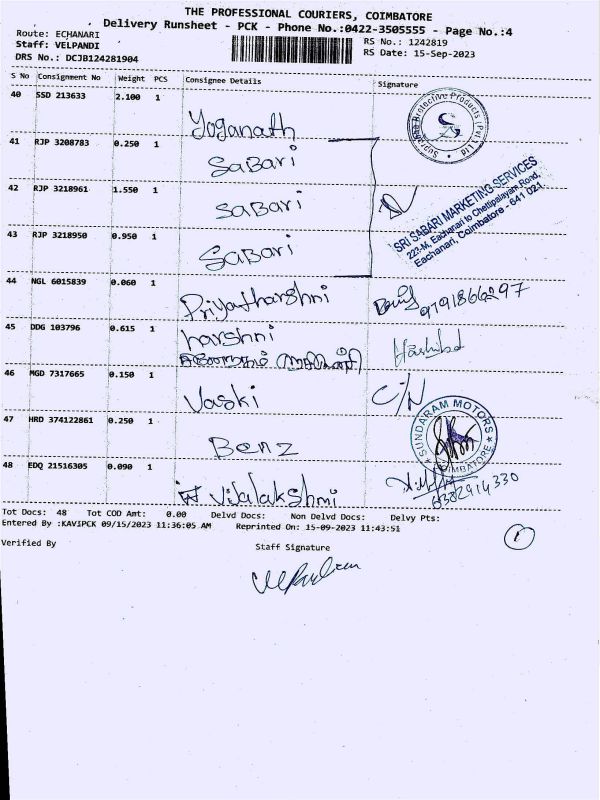 THE PROFESSIONAL COURIERS, COIMBATORE
Delivery Runsheet - PCK - Phone No.:0422-3505555 - Page No.:4
Route: ECHANARI
RS No.: 1242819
Staff: VELPANDI
RS Date: 15-Sep-2023
DRS No.: DCJB124281904
S No Consignment No Weight PCS Consignee Details Signature
40 SSD 213633 2.100 1
Yoganath
41 RJP 3208783 0.250 1
SABARI
42 RJP 3218961 1.550 1
SABARI
SRI SABARI MARKETING SERVICES
223-M, Eachanari to Chettipalayam Road,
Eachanari, Coimbatore - 641 021.
43 RJP 3218950 0.950 1
SABARI
44 NGL 6015839 0.060 1
Priyatharshni
9791866297
45 DDG 103796 0.615 1
harshni
46 MGD 7317665 0.150 1
Vaski C/N
47 HRD 374122861 0.250 1
Benz
SUNDARAM MOTORS
COIMBATORE
48 EDQ 21516305 0.090 1
Vijalakshmi
6382914330
Tot Docs: 48 Tot COD Amt: 0.00 Delvd Docs: Non Delvd Docs: Delvy Pts:
Entered By :KAVIPCK 09/15/2023 11:36:05 AM Reprinted On: 15-09-2023 11:43:51
Verified By
Staff Signature